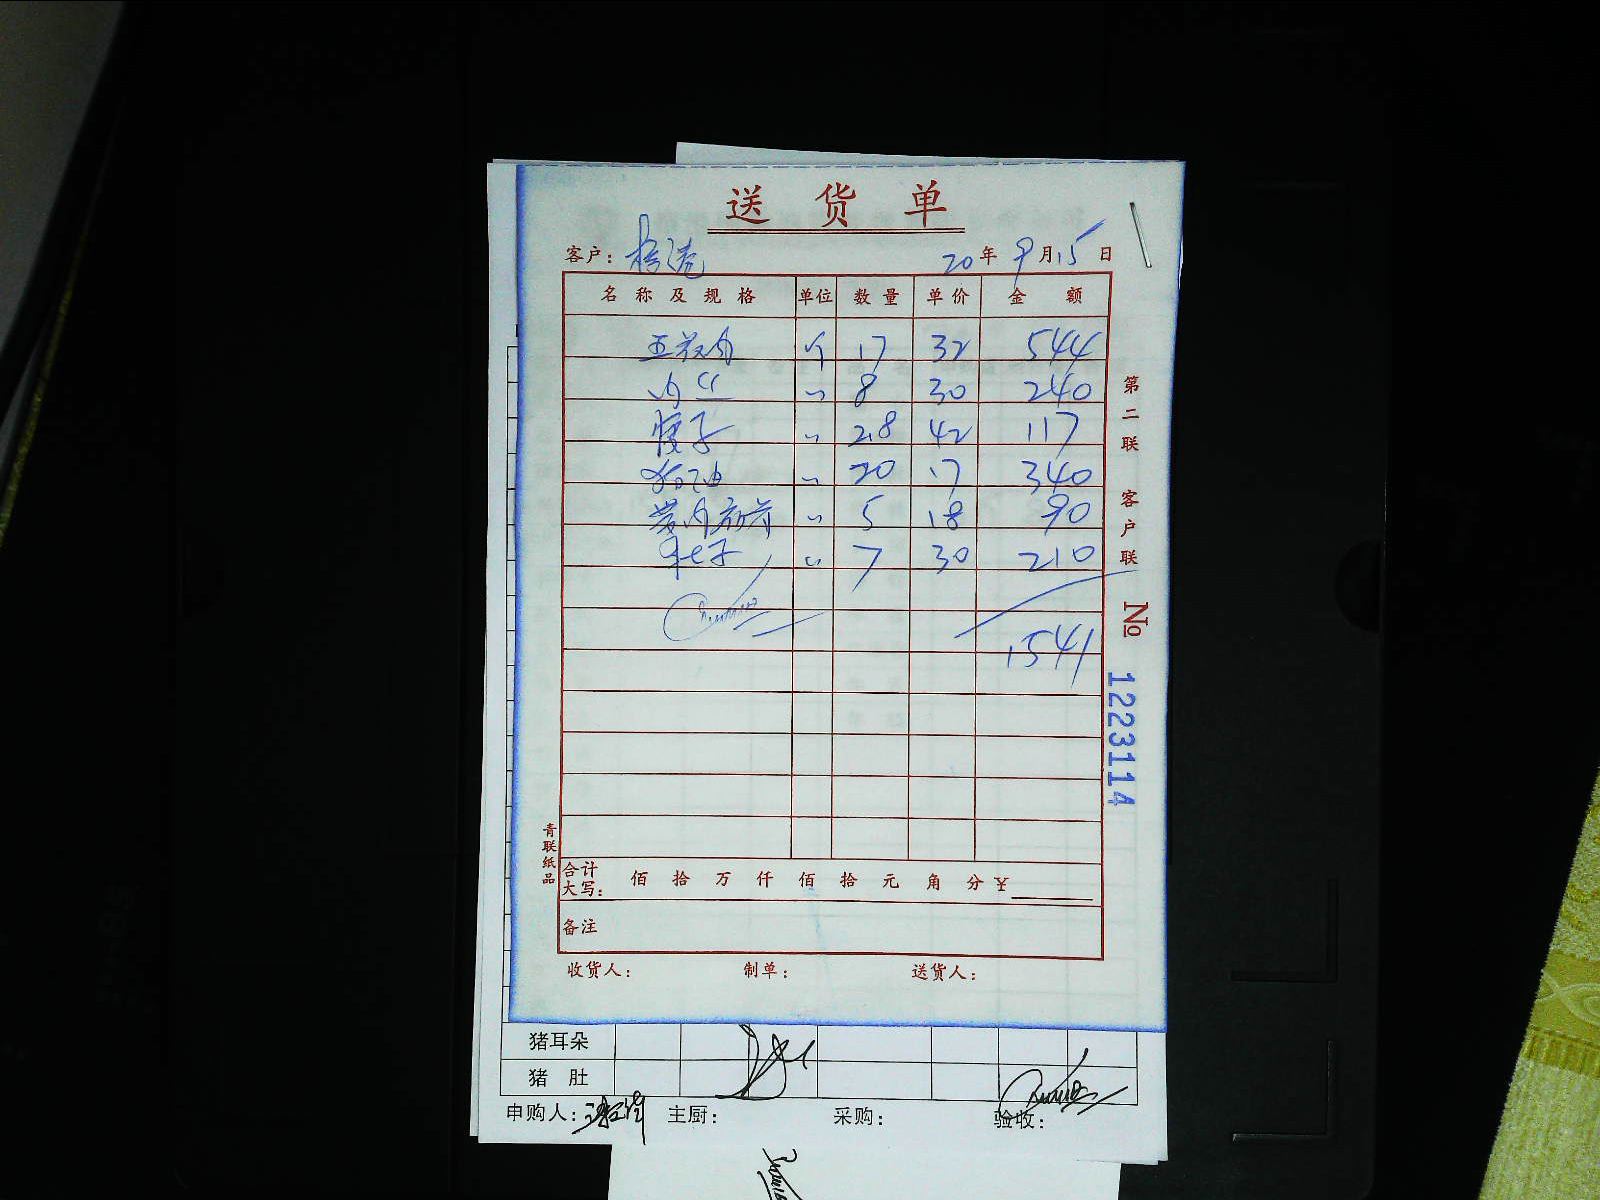 送货单
客户： 20年9月15日
名称及规格 单位 数量 单价 金额
五花肉 斤 17 32 544
肉丝 〃 8 30 240
腰子 〃 2.8 42 117
猪油 〃 20 17 340
〃 5 18 90
〃 7 30 210
1541
第二联 客户联
№ 1223114
青联纸品
合计大写： 佰 拾 万 仟 佰 拾 元 角 分 ¥
备注
收货人： 制单： 送货人：
猪耳朵
猪肚
申购人： 主厨： 采购： 验收：